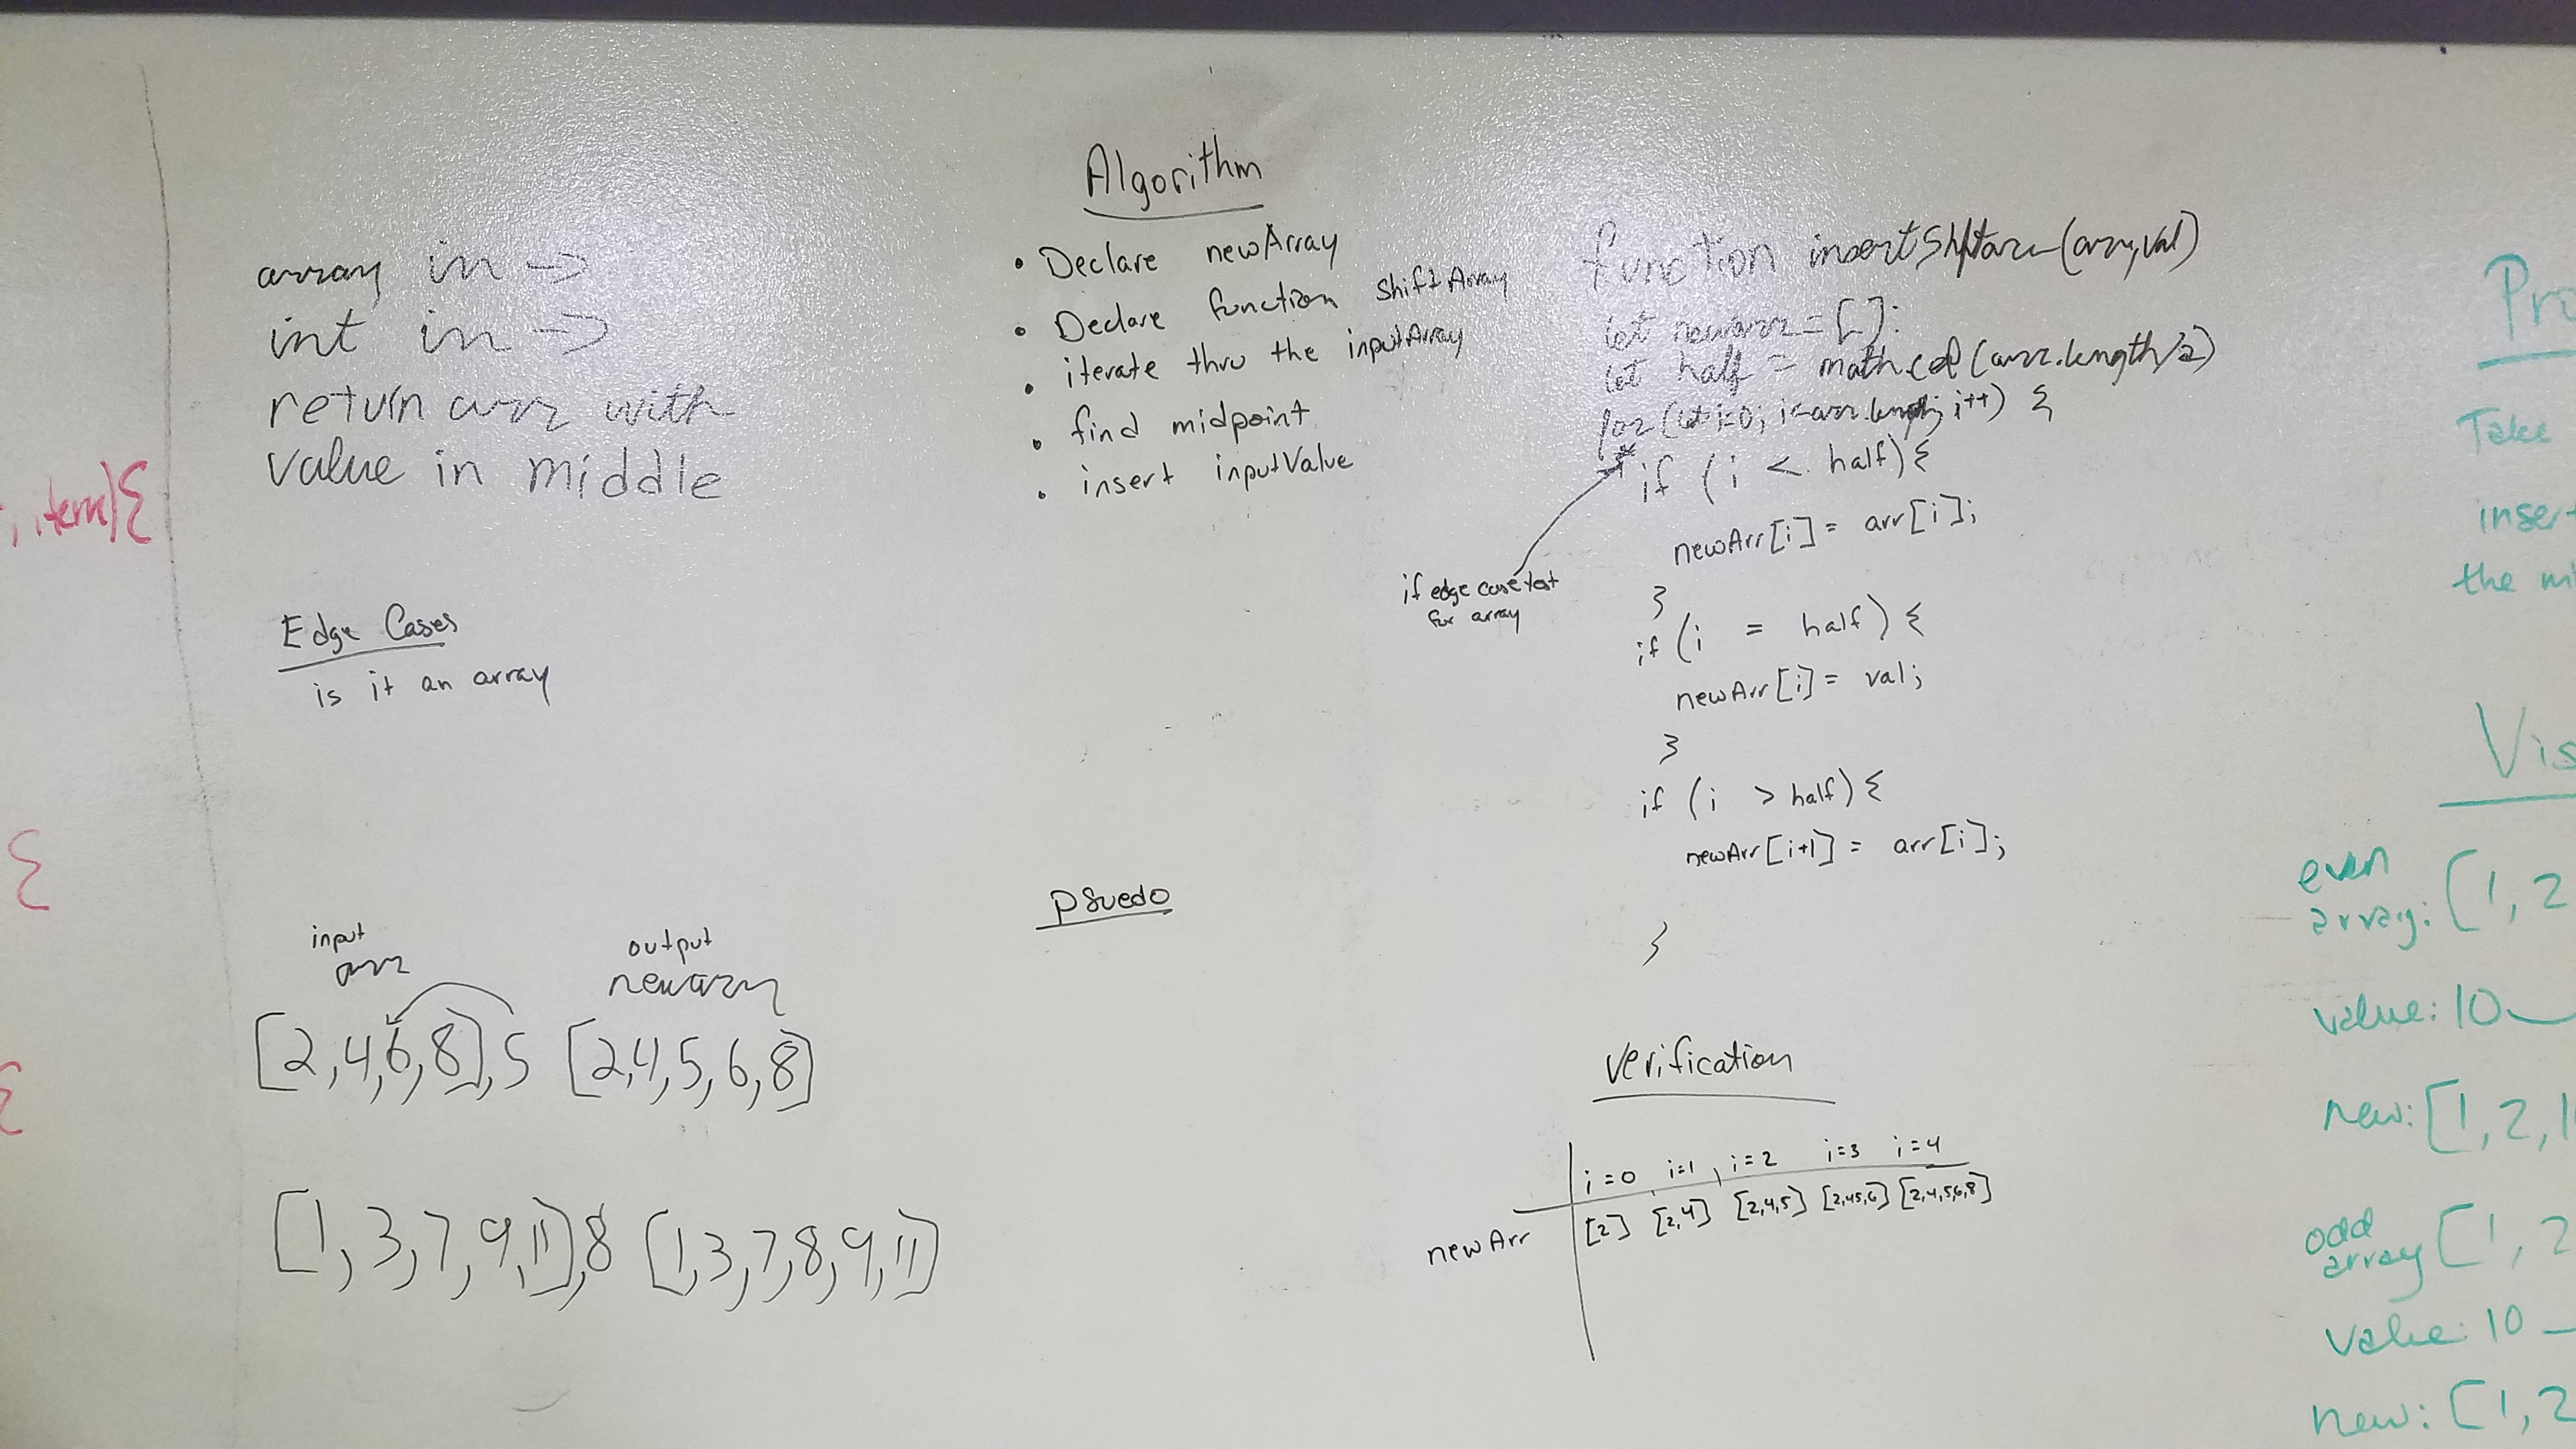 Algorithm
array in →
int in →
return arr with
value in middle
Edge Cases
is it an array
input
arr
output
newarr
[2,4,6,8],5 [2,4,5,6,8]
[1,3,7,9,11],8 [1,3,7,8,9,11]
• Declare newArray
• Declare function shiftArray
• iterate thru the inputArray
• find midpoint
• insert inputValue
Psuedo
function (arr,val)
let newarr = [];
let half = (arr.length/2)
for (let i=0; i<arr.length; i++) {
if (i < half){
newArr[i] = arr[i];
}
if (i = half) {
newArr[i] = val;
}
if (i > half) {
newArr[i+1] = arr[i];
}
if edge case test
for array
verification
i=0 i=1 i=2 i=3 i=4
newArr [2] [2,4] [2,4,5] [2,4,5,6] [2,4,5,6,8]
, item){
{
{
Take
the
even
array: [1, 2
value: 10
new: [1, 2, 1
odd
array [1, 2
value: 10
new: [1, 2